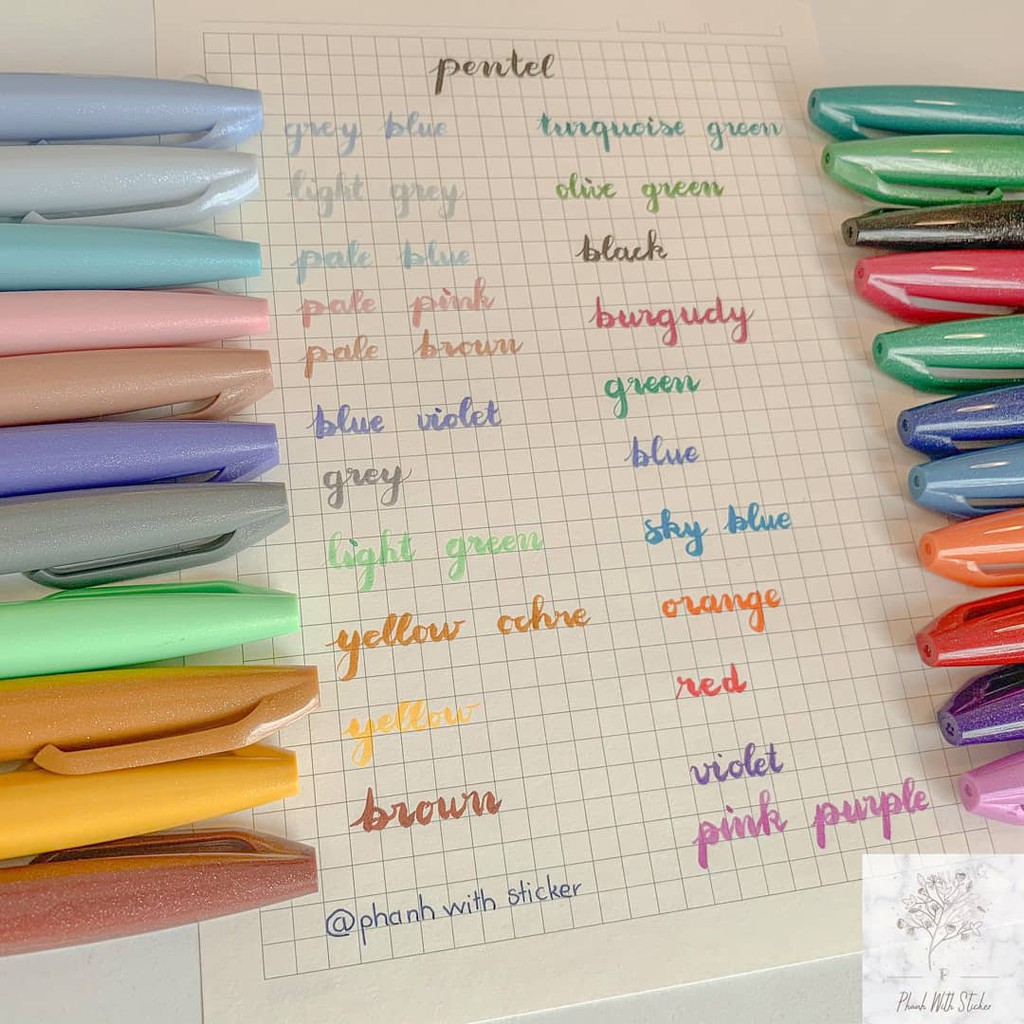 pentel
grey blue
light grey
pale blue
pale pink
pale brown
blue violet
grey
light green
yellow ochre
yellow
brown
turquoise green
olive green
black
burgudy
green
blue
sky blue
orange
red
violet
pink purple
@phanh with sticker
Phanh With Sticker